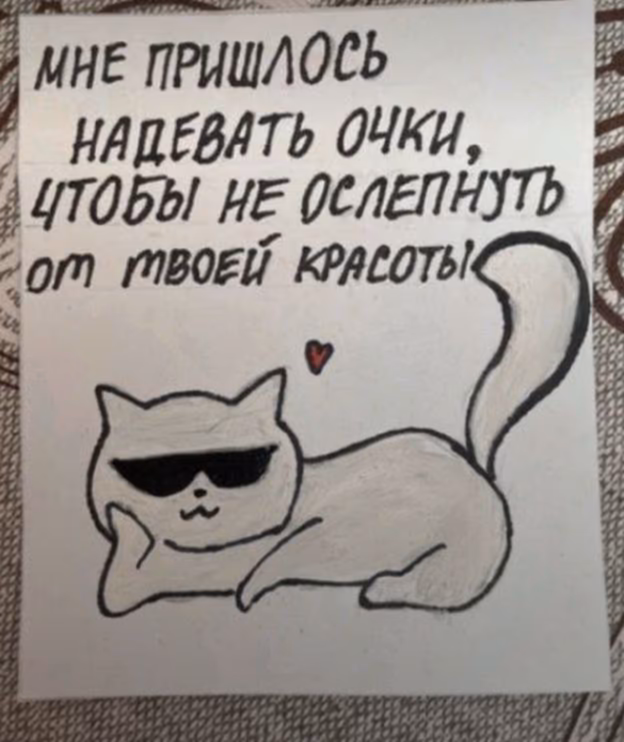 МНЕ ПРИШЛОСЬ
НАДЕВАТЬ ОЧКИ,
ЧТОБЫ НЕ ОСЛЕПНУТЬ
ОТ ТВОЕЙ КРАСОТЫ